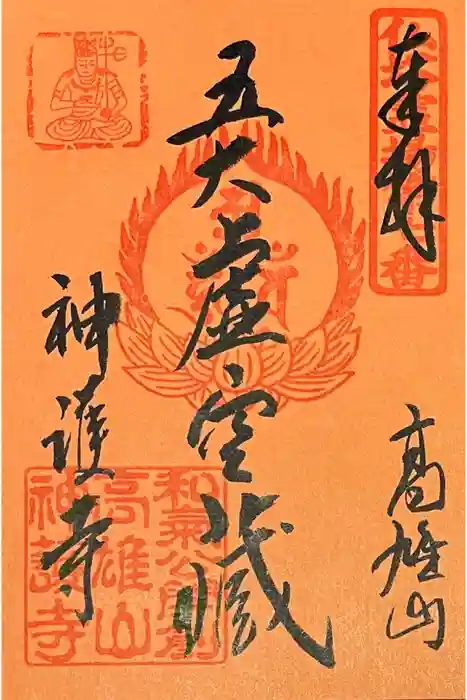 奉拝
高雄山
五大虚空蔵
神護寺
和氣公
高雄山
神護寺